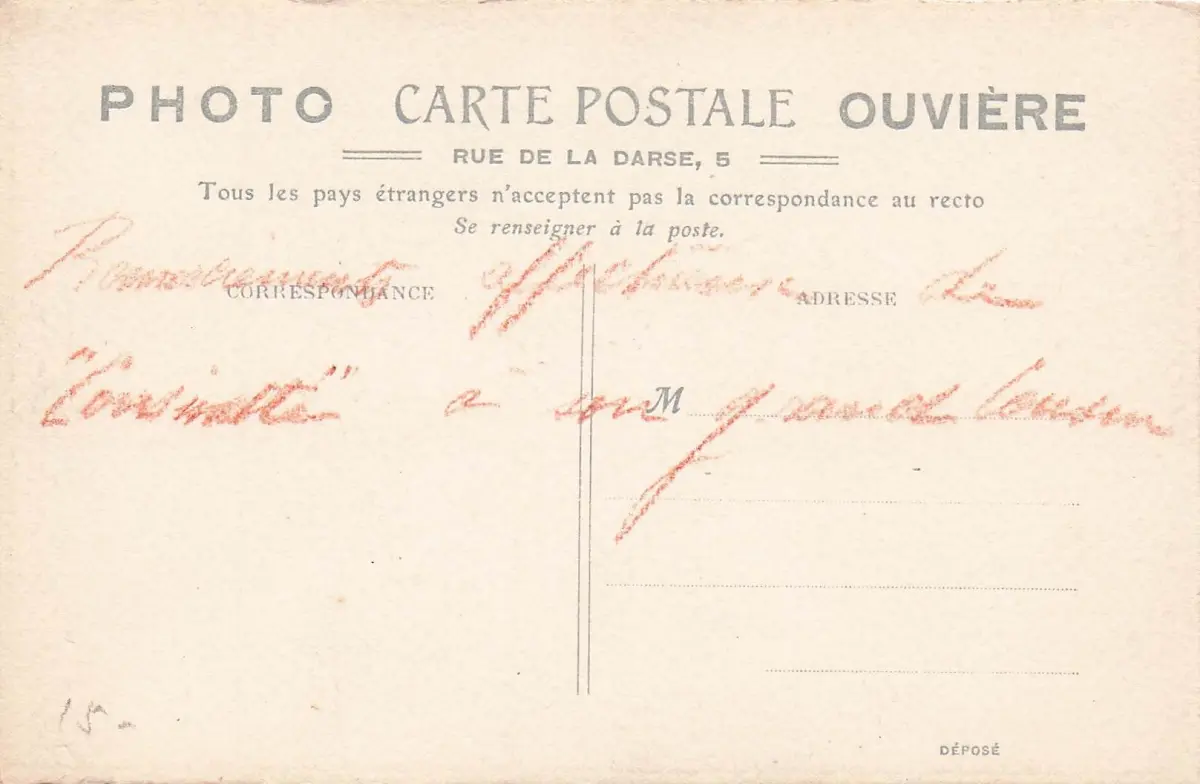 PHOTO CARTE POSTALE OUVIÈRE
RUE DE LA DARSE, 5
Tous les pays étrangers n'acceptent pas la correspondance au recto
Se renseigner à la poste.
affectueux de
CORRESPONDANCE
ADRESSE
à son grand Cousin
M
15-
DÉPOSÉ